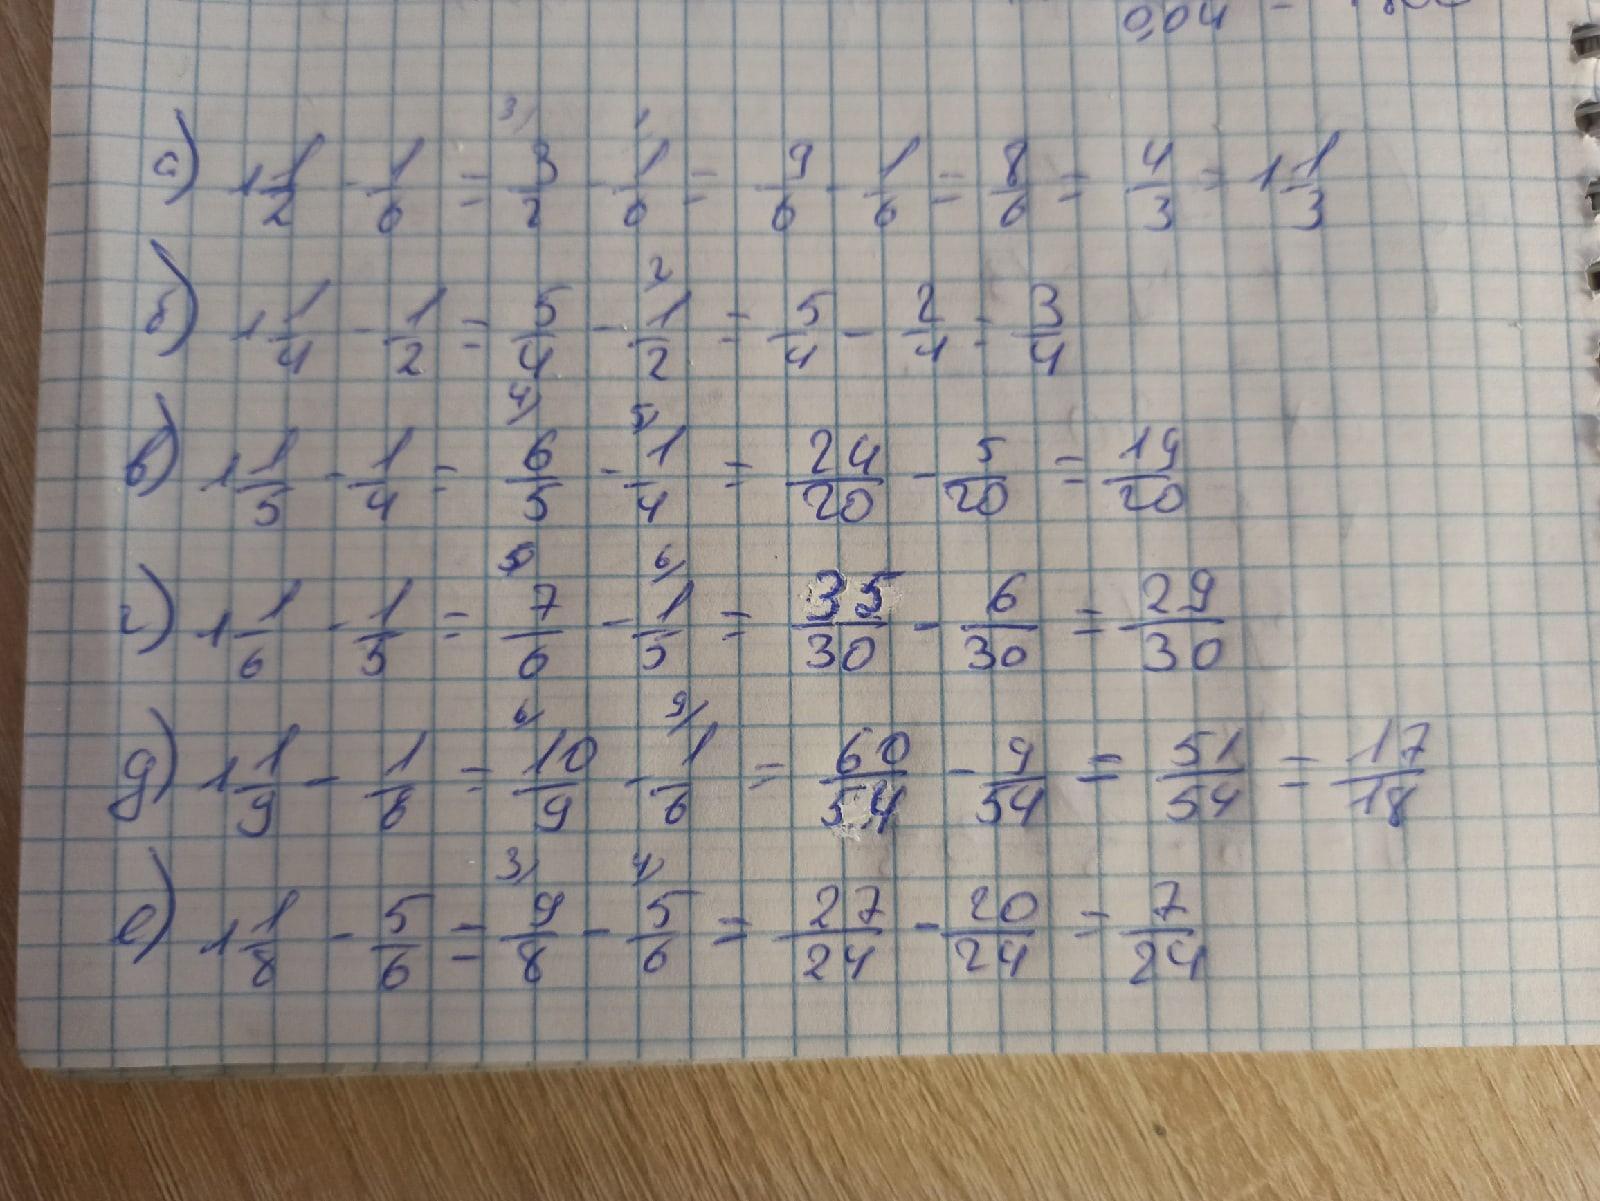 0,04 -
а) 1 1/2 - 1/6 = 3/2 - 1/6 = 9/6 - 1/6 = 8/6 = 4/3 = 1 1/3
б) 1 1/4 - 1/2 = 5/4 - 1/2 = 5/4 - 2/4 = 3/4
в) 1 1/5 - 1/4 = 6/5 - 1/4 = 24/20 - 5/20 = 19/20
г) 1 1/6 - 1/5 = 7/6 - 1/5 = 35/30 - 6/30 = 29/30
д) 1 1/9 - 1/6 = 10/9 - 1/6 = 60/54 - 9/54 = 51/54 = 17/18
е) 1 1/8 - 5/6 = 9/8 - 5/6 = 27/24 - 20/24 = 7/24